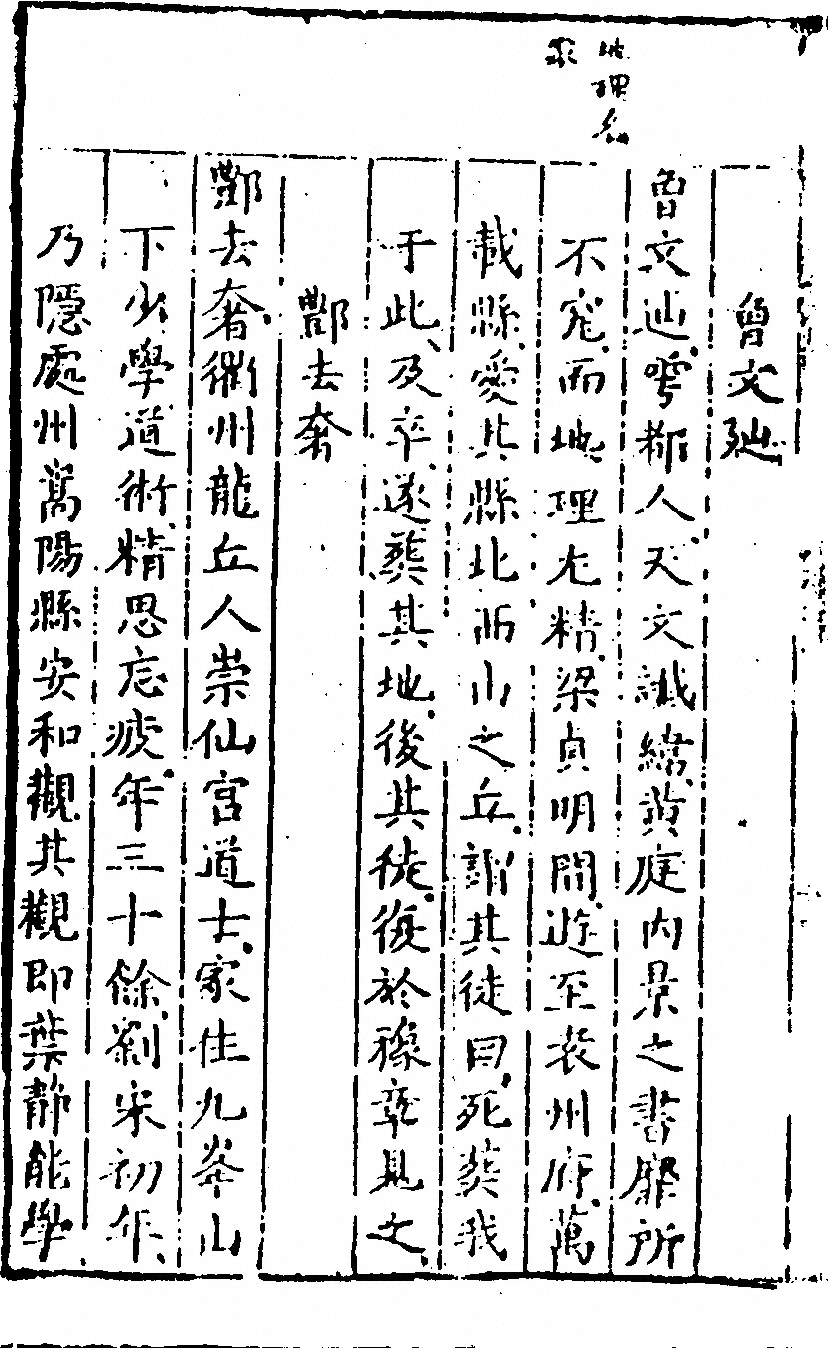 地理名
家
曾文辿
曾文辿雩都人天文讖緯黄庭内景之書靡所
不究而地理尤精梁貞明間遊至袁州府萬
載縣愛其縣北西山之丘謂其徒曰死葬我
于此及卒遂葬其地後其徒復於豫章見之
酆去奢
酆去奢衢州龍丘人崇仙宫道士家住九峯山
下少學道術精思忘疲年三十餘劉宋初年
乃隱處州嵩陽縣安和觀其觀即葉静能學